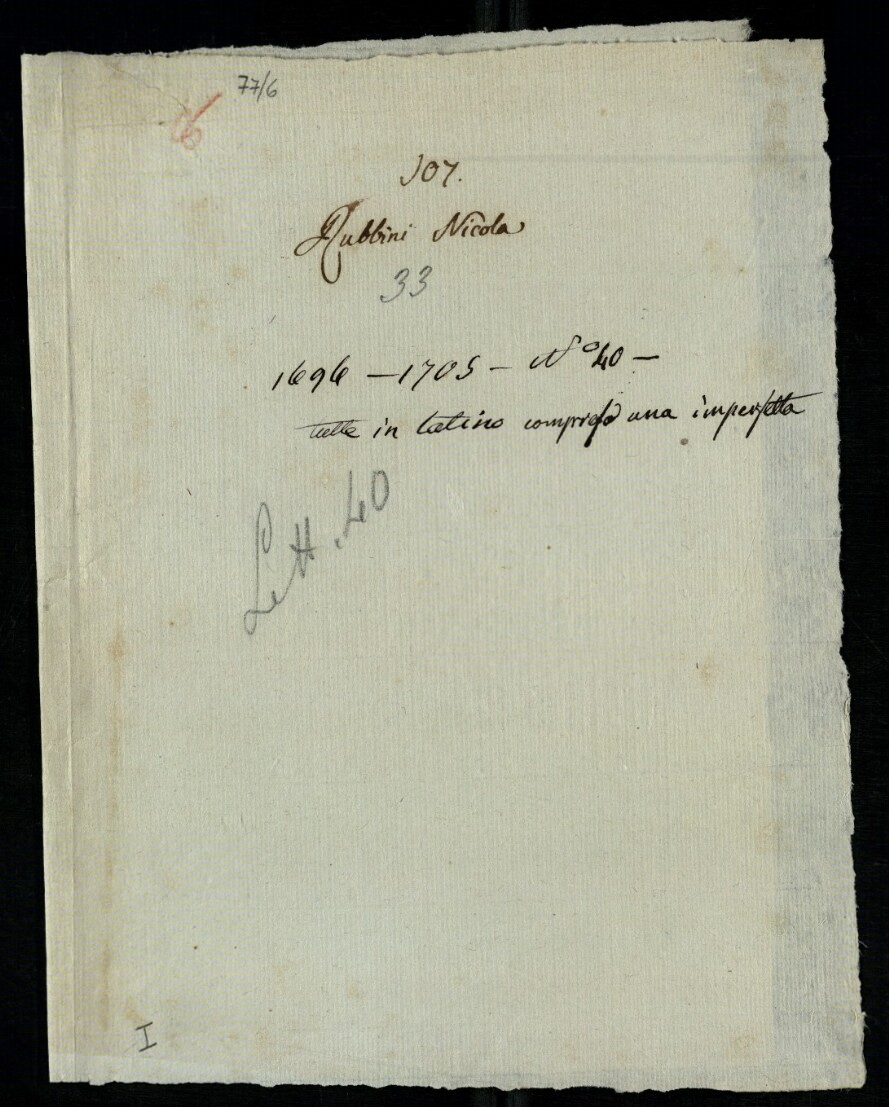 77/6
6
107.
Rubbini Nicola
33
1696 — 1705 — N° 40 —
tutte in latino compresa una imperfetta
Lett. 40
I